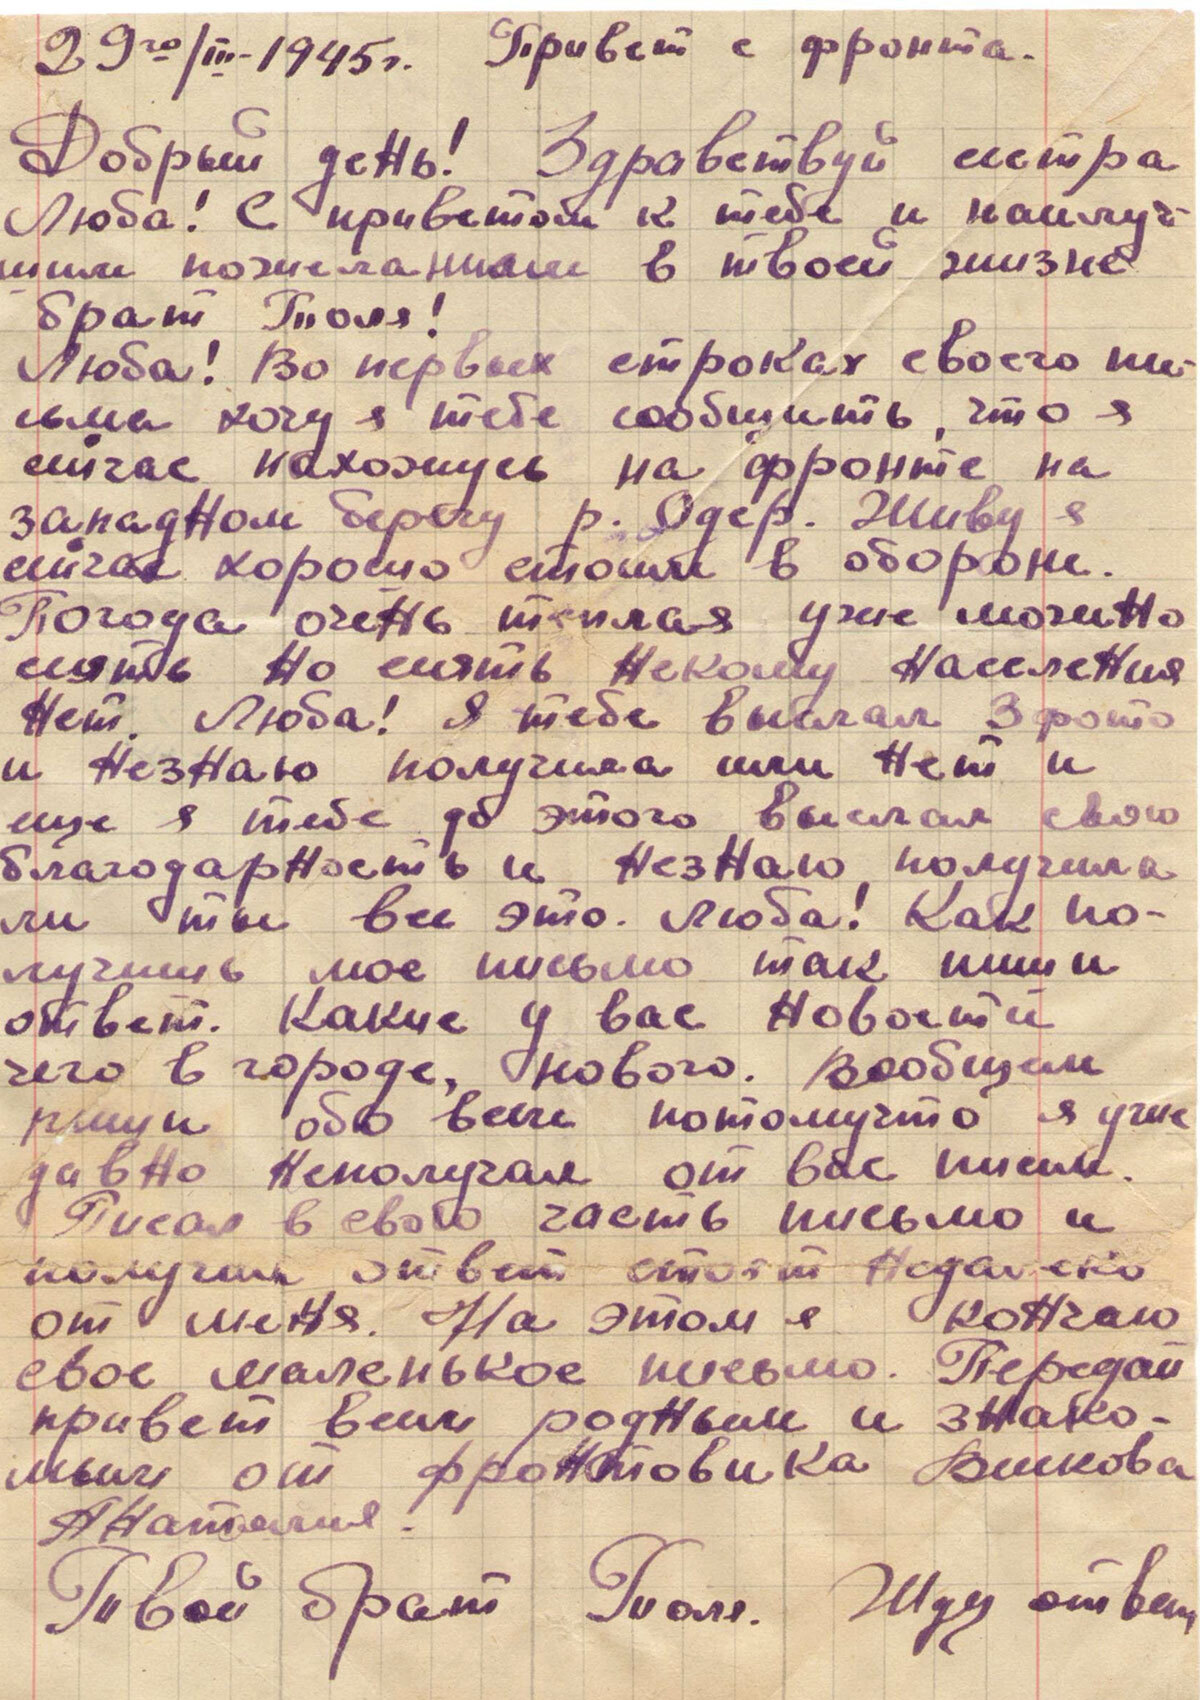 29го/III-1945г. Привет с фронта.
Добрый день! Здравствуй систра
Люба! С приветом к тебе и наилуч-
шим пожеланием в твоей жизне
брат Толя!
Люба! Во первых строках своего пи-
сьма хочу я тебе сообщить, что я
сийчас нахожусь на фронте на
западном берегу р. Одер. Живу я
сийчас хорошо стоим в обороне.
Погода очень теплая уже можно
сиять но сиять некому населения
нет. Люба! Я тебе выслал 3 фото
и незнаю получила или нет и
еще я тебе до этого выслал свою
благодарность и незнаю получила
ли ты все это. Люба! Как по-
лучишь мое письмо так пиши
ответ. Какие у вас новости
чего в городе, нового. Вообщем
пиши обо всем потомучто я уже
давно неполучал от вас писем.
Писал в свою часть письмо и
получил ответ стоят недалеко
от меня. На этом я кончаю
свое маленькое письмо. Передай
привет всем родным и знако-
мым от фронтовика
Анатолия.
Твой брат Толя. Жду ответ